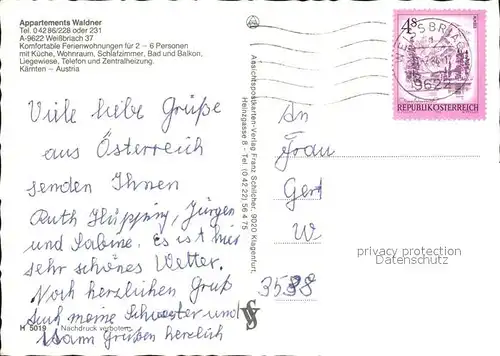 Appartements Waldner
Tel. 0 42 86/228 oder 231
A-9622 Weißbriach 37
Komfortable Ferienwohnungen für 2 – 6 Personen
mit Küche, Wohnraum, Schlafzimmer, Bad und Balkon,
Liegewiese, Telefon und Zentralheizung.
Kärnten – Austria
Viele liebe Grüße
aus Österreich
senden Ihnen
Ruth Jürgen
und Sabine. Es ist hier
sehr schönes Wetter.
Noch herzlichen Gruß
auch meine Schwester und
Mann grüßen herzlich
H 5019 Nachdruck verboten
Ansichtspostkarten-Verlag Franz Schilcher, 9020 Klagenfurt,
Heinzgasse 8 - Tel. (0 42 22) 56 4 75
4S
REPUBLIK ÖSTERREICH
9622
An
Frau
Gert
W
3538
privacy protection
Datenschutz